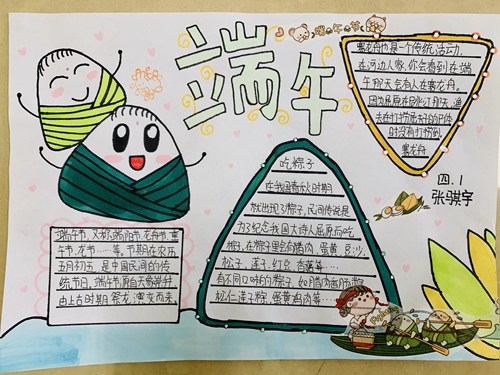 端午
端午节
赛龙舟也是一个传统活动,
在河边人家,你会看到在端
午那天会有人在赛龙舟。
因为屈原在
时没有打捞到
赛龙舟
四.1
张骐宇
吃粽子
在我国春秋时期
就出现了粽子,民间传说是
为了纪念我国大诗人屈原而吃
的,在粽子里会有腊肉、蛋黄、豆沙、
松子,莲子,红豆,香蕈等…
有不同口味的粽子,如腊肉香肠粽
松仁莲子粽,蛋黄鸡肉等…
端午节,又称端阳节,龙舟节,重
午节,龙节……等。节期在农历
五月初五,是中国民间的传
统节日,端午节源自天象崇拜
由上古时期祭龙演变而来。